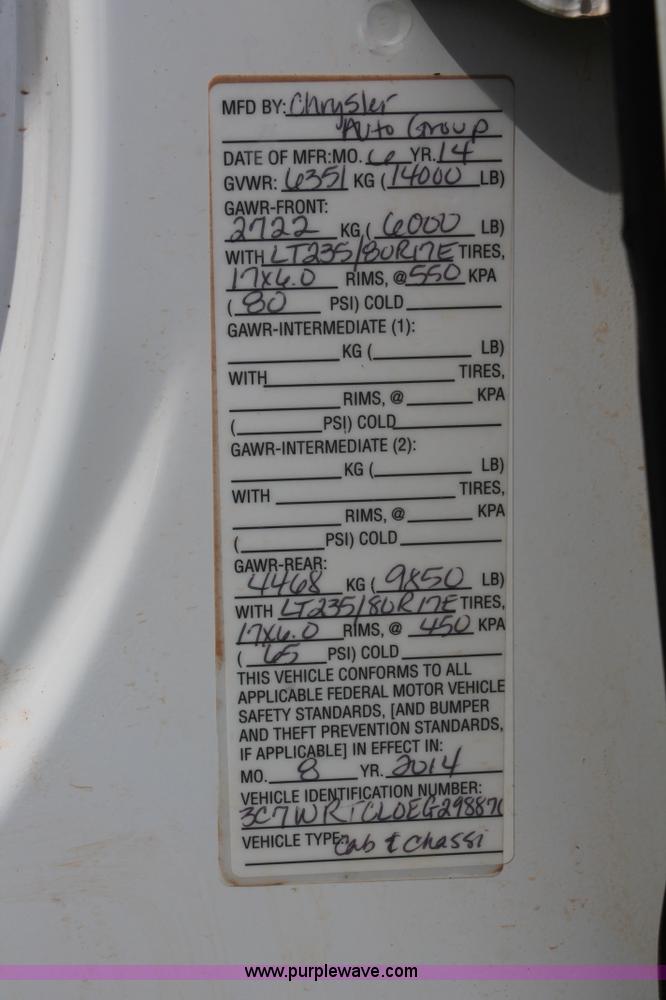 MFD BY: Chrysler
Auto Group
DATE OF MFR:MO. 6 YR. 14
GVWR: 6351 KG (14000 LB)
GAWR-FRONT:
2722 KG ( 6000 LB)
WITH LT235/80R17E TIRES,
17x6.0 RIMS, @ 550 KPA
( 80 PSI) COLD
GAWR-INTERMEDIATE (1):
KG ( LB)
WITH TIRES,
RIMS, @ KPA
( PSI) COLD
GAWR-INTERMEDIATE (2):
KG ( LB)
WITH TIRES,
RIMS, @ KPA
( PSI) COLD
GAWR-REAR:
4468 KG ( 9850 LB)
WITH LT235/80R17E TIRES,
17x6.0 RIMS, @ 450 KPA
( 65 PSI) COLD
THIS VEHICLE CONFORMS TO ALL
APPLICABLE FEDERAL MOTOR VEHICLE
SAFETY STANDARDS, [AND BUMPER
AND THEFT PREVENTION STANDARDS,
IF APPLICABLE] IN EFFECT IN:
MO. 8 YR. 2014
VEHICLE IDENTIFICATION NUMBER:
VEHICLE TYPE: Cab & chassi
www.purplewave.com